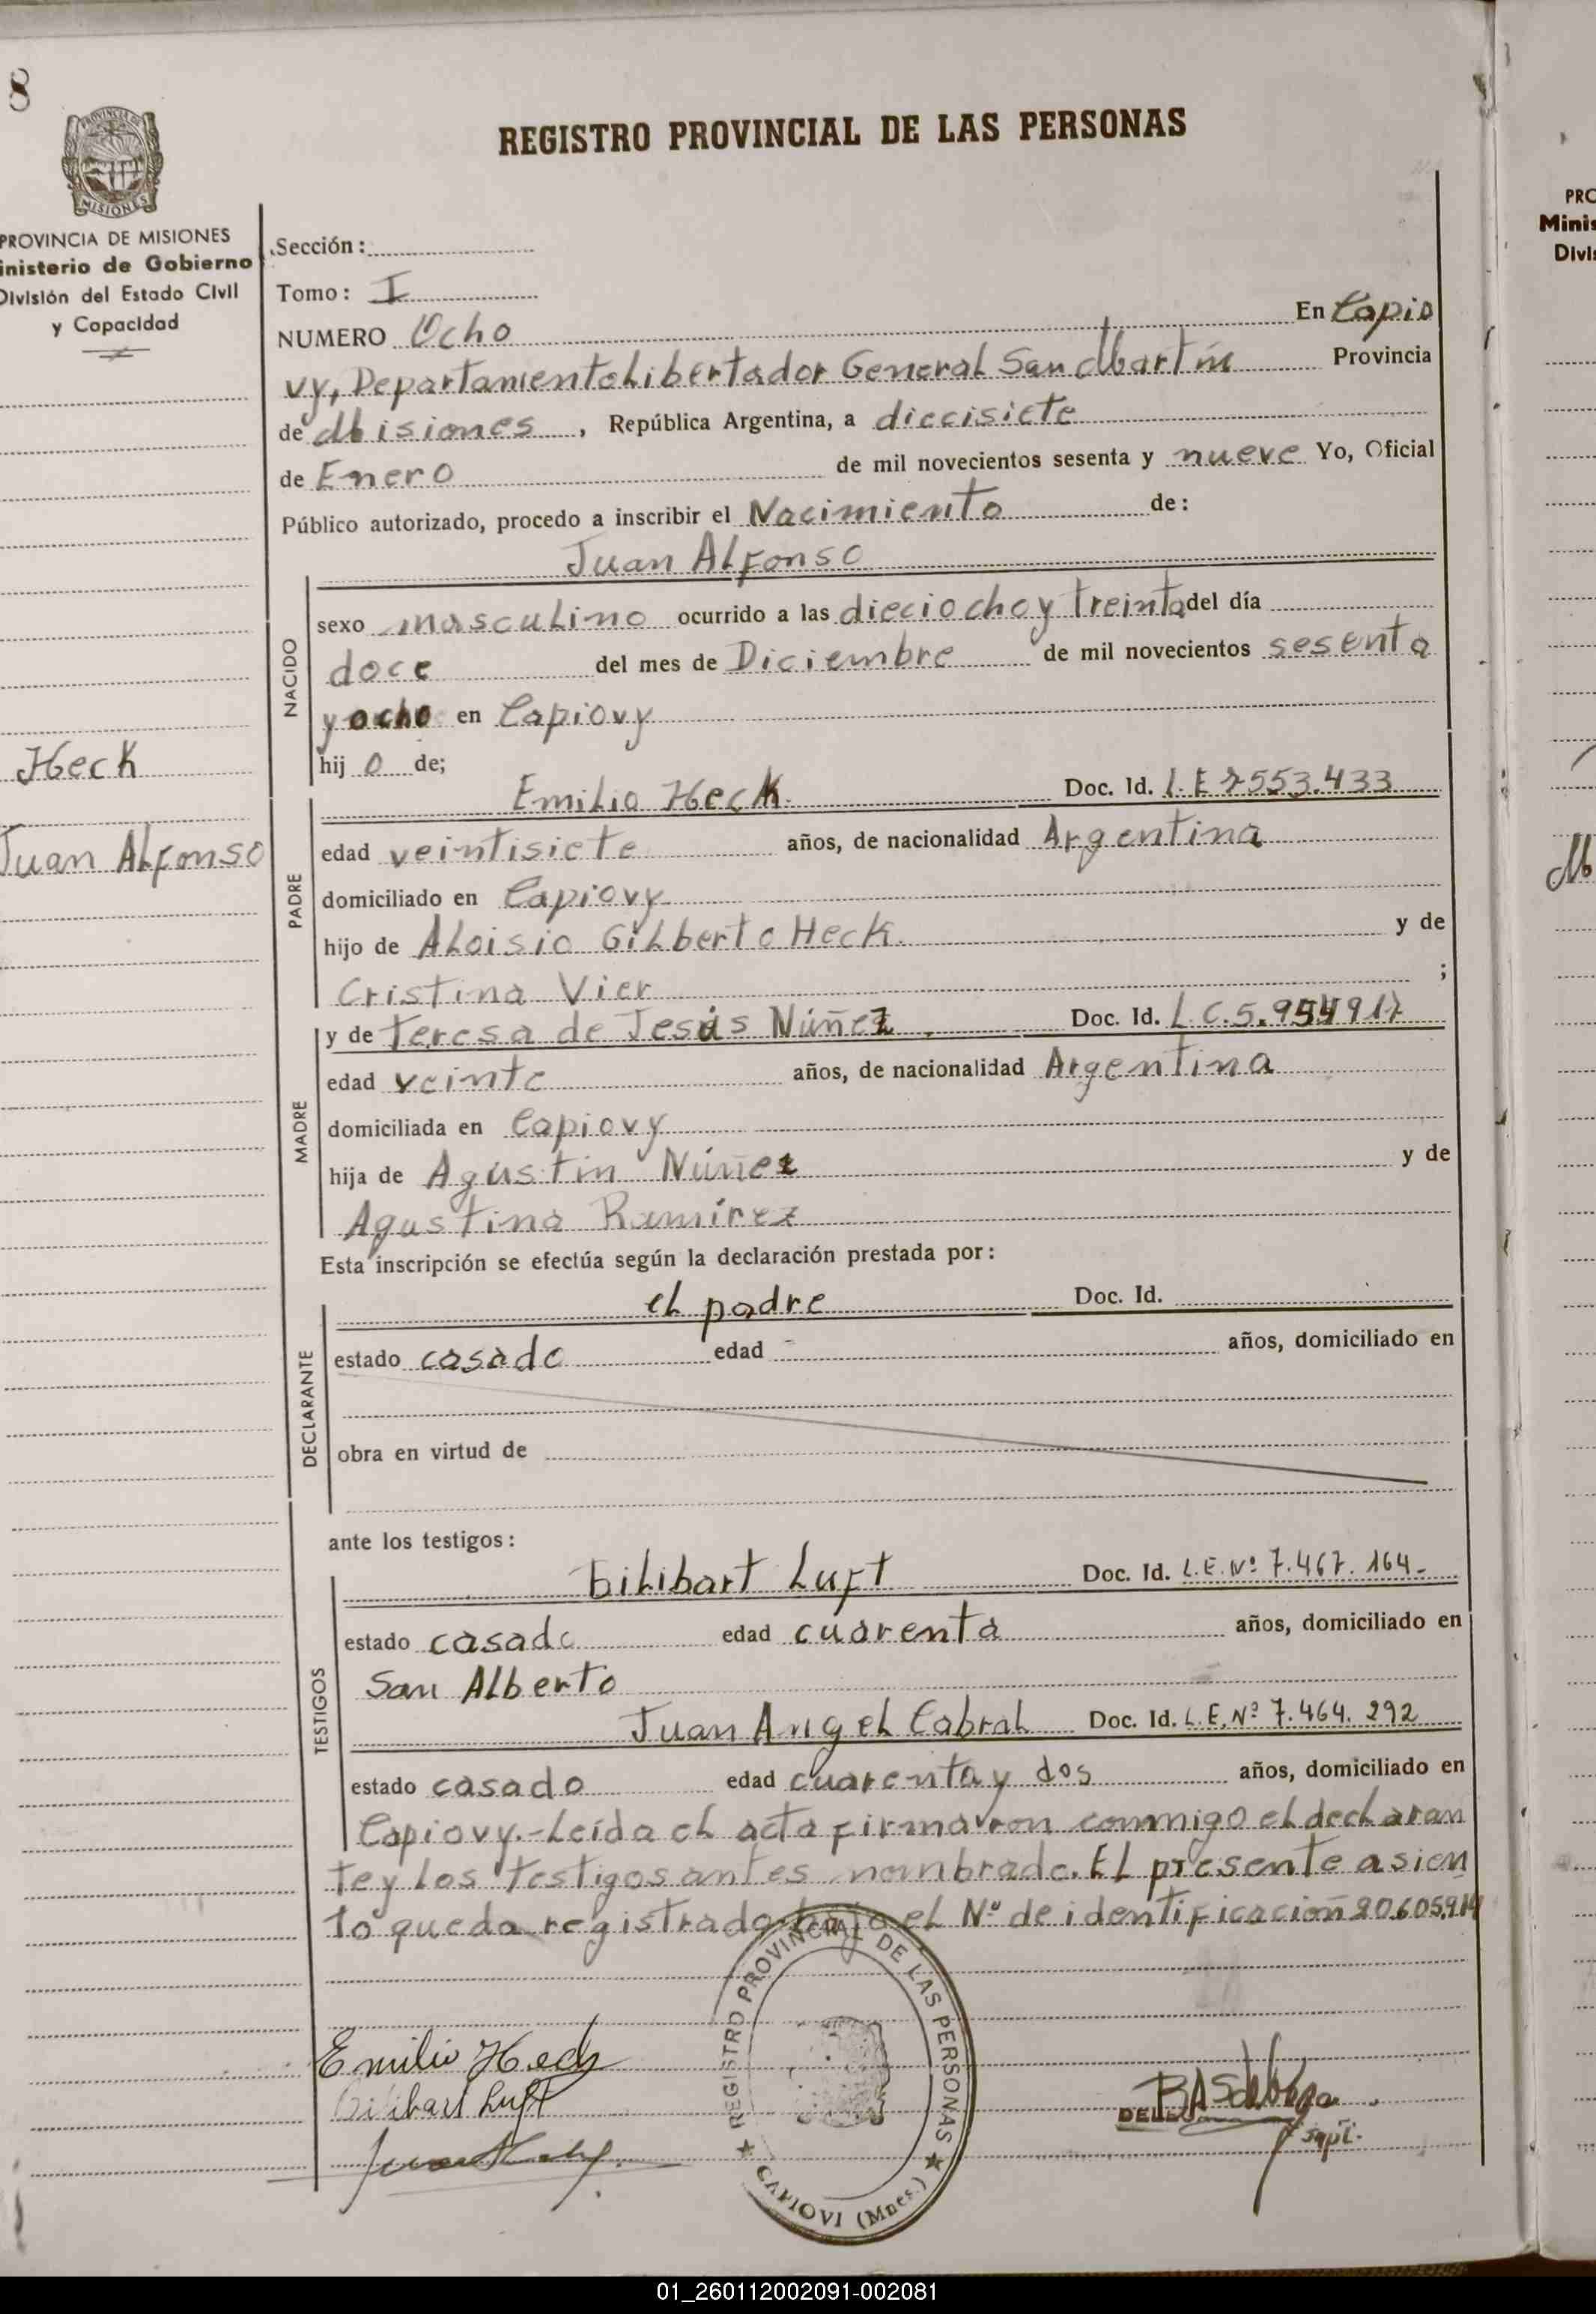 8
REGISTRO PROVINCIAL DE LAS PERSONAS
PROVINCIA DE MISIONES
inisterio de Gobierno
División del Estado Civil
y Capacidad
Sección:
Tomo: I
NUMERO Ocho En Capio
vy, Departamento Libertador General San Martín Provincia
de Misiones, República Argentina, a diecisiete
de Enero de mil novecientos sesenta y nueve Yo, Oficial
Público autorizado, procedo a inscribir el Nacimiento de:
Juan Alfonso
NACIDO
sexo masculino ocurrido a las dieciocho y treinta del día
doce del mes de Diciembre de mil novecientos sesenta
y ocho en Capiovy
hij o de;
Heck
Juan Alfonso
PADRE
Emilio Heck. Doc. Id. L.E 7553.433
edad veintisiete años, de nacionalidad Argentina
domiciliado en Capiovy
hijo de Aloisio Gilberto Heck. y de
Cristina Vier ;
MADRE
y de Teresa de Jesús Núñez Doc. Id. L.C. 5.954917
edad veinte años, de nacionalidad Argentina
domiciliada en Capiovy
hija de Agustín Núñez y de
Agustina Ramírez
Esta inscripción se efectúa según la declaración prestada por:
DECLARANTE
el padre Doc. Id.
estado casado edad años, domiciliado en
obra en virtud de
ante los testigos:
TESTIGOS
Gilibart Luft Doc. Id. L.E. Nº 7.467.164.-
estado casado edad cuarenta años, domiciliado en
San Alberto
Juan Angel Cabral Doc. Id. L.E. Nº 7.464.292
estado casado edad cuarenta y dos años, domiciliado en
Capiovy.-Leída el acta firmaron conmigo el declaran
te y los testigos antes nombrado. El presente asien
to queda registrado bajo el Nº de identificación 20.605.914
Emilio Heck
Gilibart Luft
REGISTRO PROVINCIAL DE LAS PERSONAS
CAPIOVI (Mnes.)
PRO
Minis
Divis
01_260112002091-002081